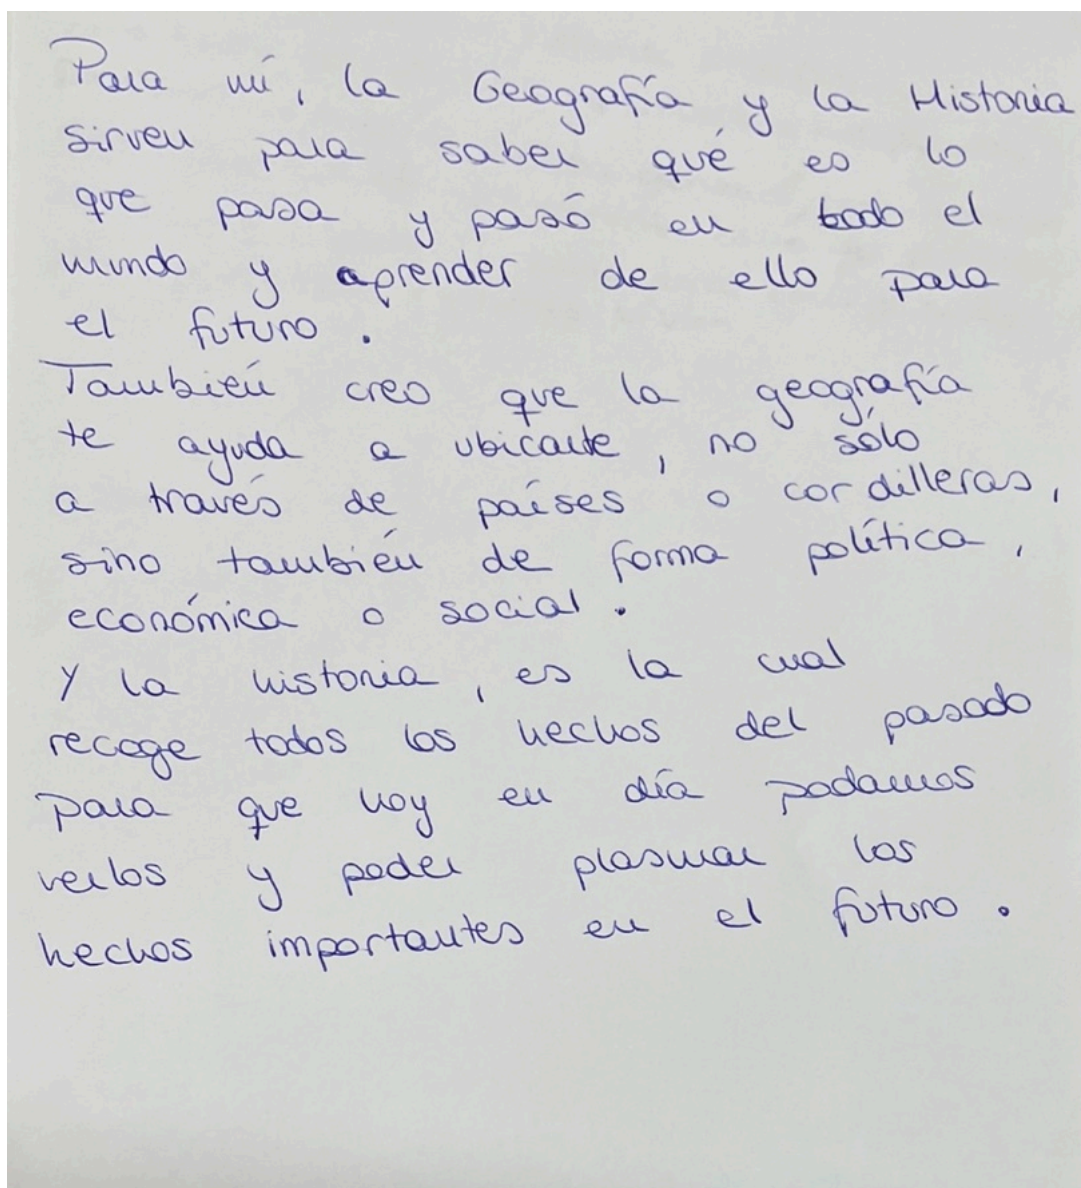 Para mí, la Geografía y la Historia
sirven para saber qué es lo
que pasa y pasó en todo el
mundo y aprender de ello para
el futuro.
También creo que la geografía
te ayuda a ubicarte, no sólo
a través de países o cordilleras,
sino también de forma política,
económica o social.
Y la historia, es la cual
recoge todos los hechos del pasado
para que hoy en día podamos
verlos y poder plasmar los
hechos importantes en el futuro.